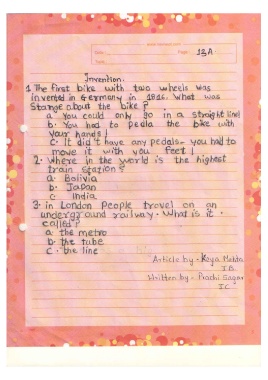 Page: 13A
Invention:
1. The first bike with two wheels was
invented in Germany in 1816. What was
Stange about the bike?
a. You could only go in a straight line!
b. You had to pedla the bike with
your hands!
c. It did't have any pedals- you had to
move it with you feet!
2. Where in the world is the highest
train station?
a. Bolivia
b. Japan
c. India
3. in London People travel on an
underground railway. What is it
called?
a. the metro
b. the tube
c. the line
Article by - Keya Mehta
I.B.
Written by - Prachi Sagar
IC